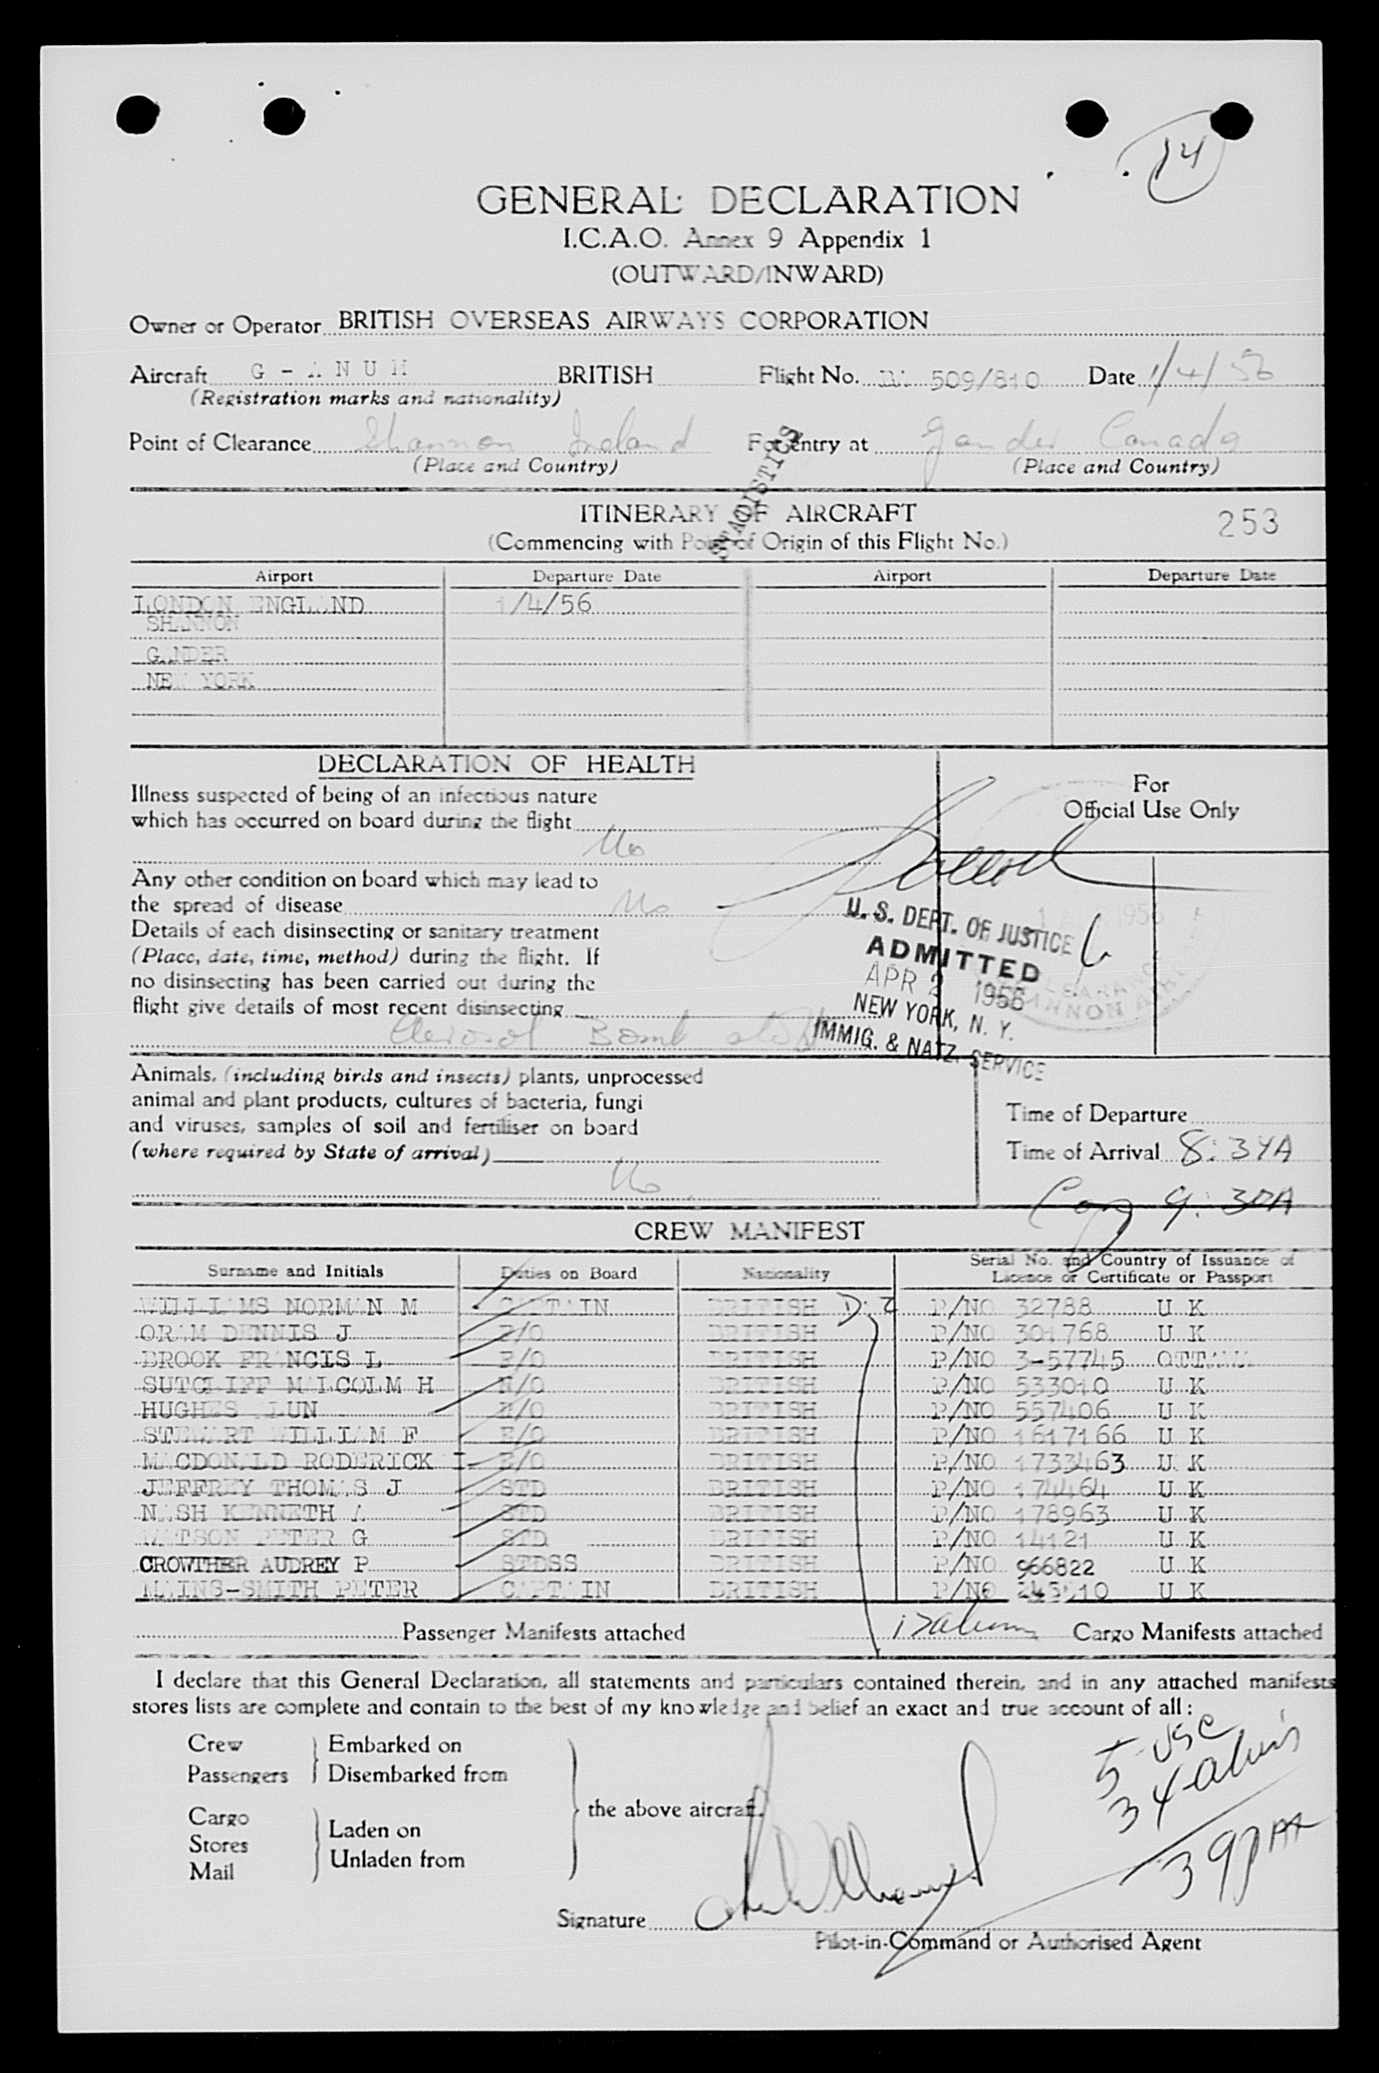 14
GENERAL DECLARATION
I.C.A.O. Annex 9 Appendix 1
(OUTWARD/INWARD)
Owner or Operator BRITISH OVERSEAS AIRWAYS CORPORATION
Aircraft G - ANUM BRITISH Flight No. 509/810 Date 1/4/56
(Registration marks and nationality)
Point of Clearance Shannon Ireland For entry at Gander Canada
(Place and Country) (Place and Country)
STATISTICS
ITINERARY OF AIRCRAFT
253
(Commencing with Point of Origin of this Flight No.)
Airport Departure Date Airport Departure Date
LONDON ENGLAND 1/4/56
SHANNON
GANDER
NEW YORK
DECLARATION OF HEALTH
For
Official Use Only
Illness suspected of being of an infectious nature
which has occurred on board during the flight
No
Any other condition on board which may lead to
the spread of disease No
Details of each disinsecting or sanitary treatment
(Place, date, time, method) during the flight. If
no disinsecting has been carried out during the
flight give details of most recent disinsecting
Aerosol Bomb
U. S. DEPT. OF JUSTICE
ADMITTED
APR 2 1956
NEW YORK, N. Y.
IMMIG. & NATZ. SERVICE
Animals, (including birds and insects) plants, unprocessed
animal and plant products, cultures of bacteria, fungi
and viruses, samples of soil and fertiliser on board
(where required by State of arrival)
No
Time of Departure
Time of Arrival 8:34A
9:30A
CREW MANIFEST
Surname and Initials Duties on Board Nationality Serial No. and Country of Issuance of Licence or Certificate or Passport
WILLIAMS NORMAN M CAPTAIN BRITISH P/NO 32788 U K
ORAM DENNIS J F/O BRITISH P/NO 301768 U K
BROOK FRANCIS L F/O BRITISH P/NO 3-57745 OTTAWA
SUTCLIFF MALCOLM H N/O BRITISH P/NO 533010 U K
HUGHES ALUN BRITISH P/NO 557406 U K
STEWART WILLIAM F E/O BRITISH P/NO 1617166 U K
MACDONALD RODERICK I E/O BRITISH P/NO 1733463 U K
JEFFREY THOMAS J STD BRITISH P/NO 174464 U K
NASH KENNETH A STD BRITISH P/NO 178963 U K
WATSON PETER G STD BRITISH P/NO 14121 U K
CROWTHER AUDREY P STDSS BRITISH P/NO 966822 U K
MAINS-SMITH PETER CAPTAIN BRITISH P/NO U K
Passenger Manifests attached Cargo Manifests attached
I declare that this General Declaration, all statements and particulars contained therein, and in any attached manifests
stores lists are complete and contain to the best of my knowledge and belief an exact and true account of all:
Crew
Passengers
Embarked on
Disembarked from
Cargo
Stores
Mail
Laden on
Unladen from
the above aircraft.
5-USC
34-aliens
39
Signature
Pilot-in-Command or Authorised Agent